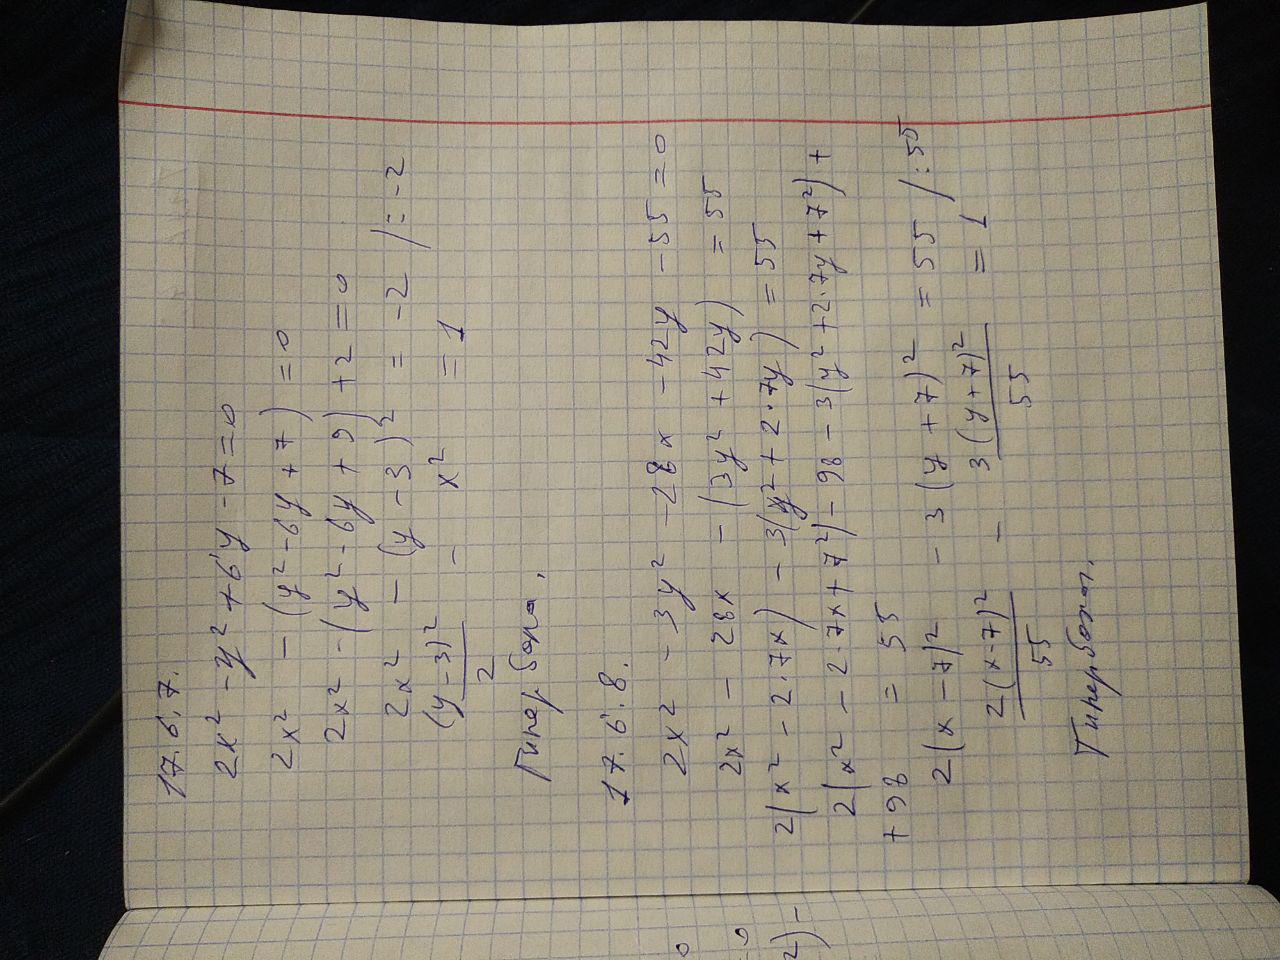 17.6.7.
2x² - y² + 6y - 7 = 0
2x² - (y² - 6y + 7) = 0
2x² - (y² - 6y + 9) + 2 = 0
2x² - (y - 3)² = -2 /:-2
(y-3)²/2 - x² = 1
Гипербола.
17.6.8.
2x² - 3y² - 28x - 42y - 55 = 0
2x² - 28x - (3y² + 42y) = 55
2(x² - 2·7x) - 3(y² + 2·7y) = 55
2(x² - 2·7x + 7²) - 98 - 3(y² + 2·7y + 7²) +
+ 98 = 55
2(x - 7)² - 3(y + 7)² = 55 /:55
2(x-7)²/55 - 3(y+7)²/55 = 1
Гипербола.